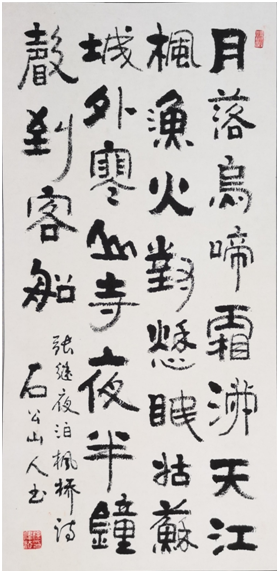 月落烏啼霜沸天江
楓漁火對愁眠姑蘇
城外寒山寺夜半鐘
聲到客船
張繼夜泊楓橋诗
石公山人书